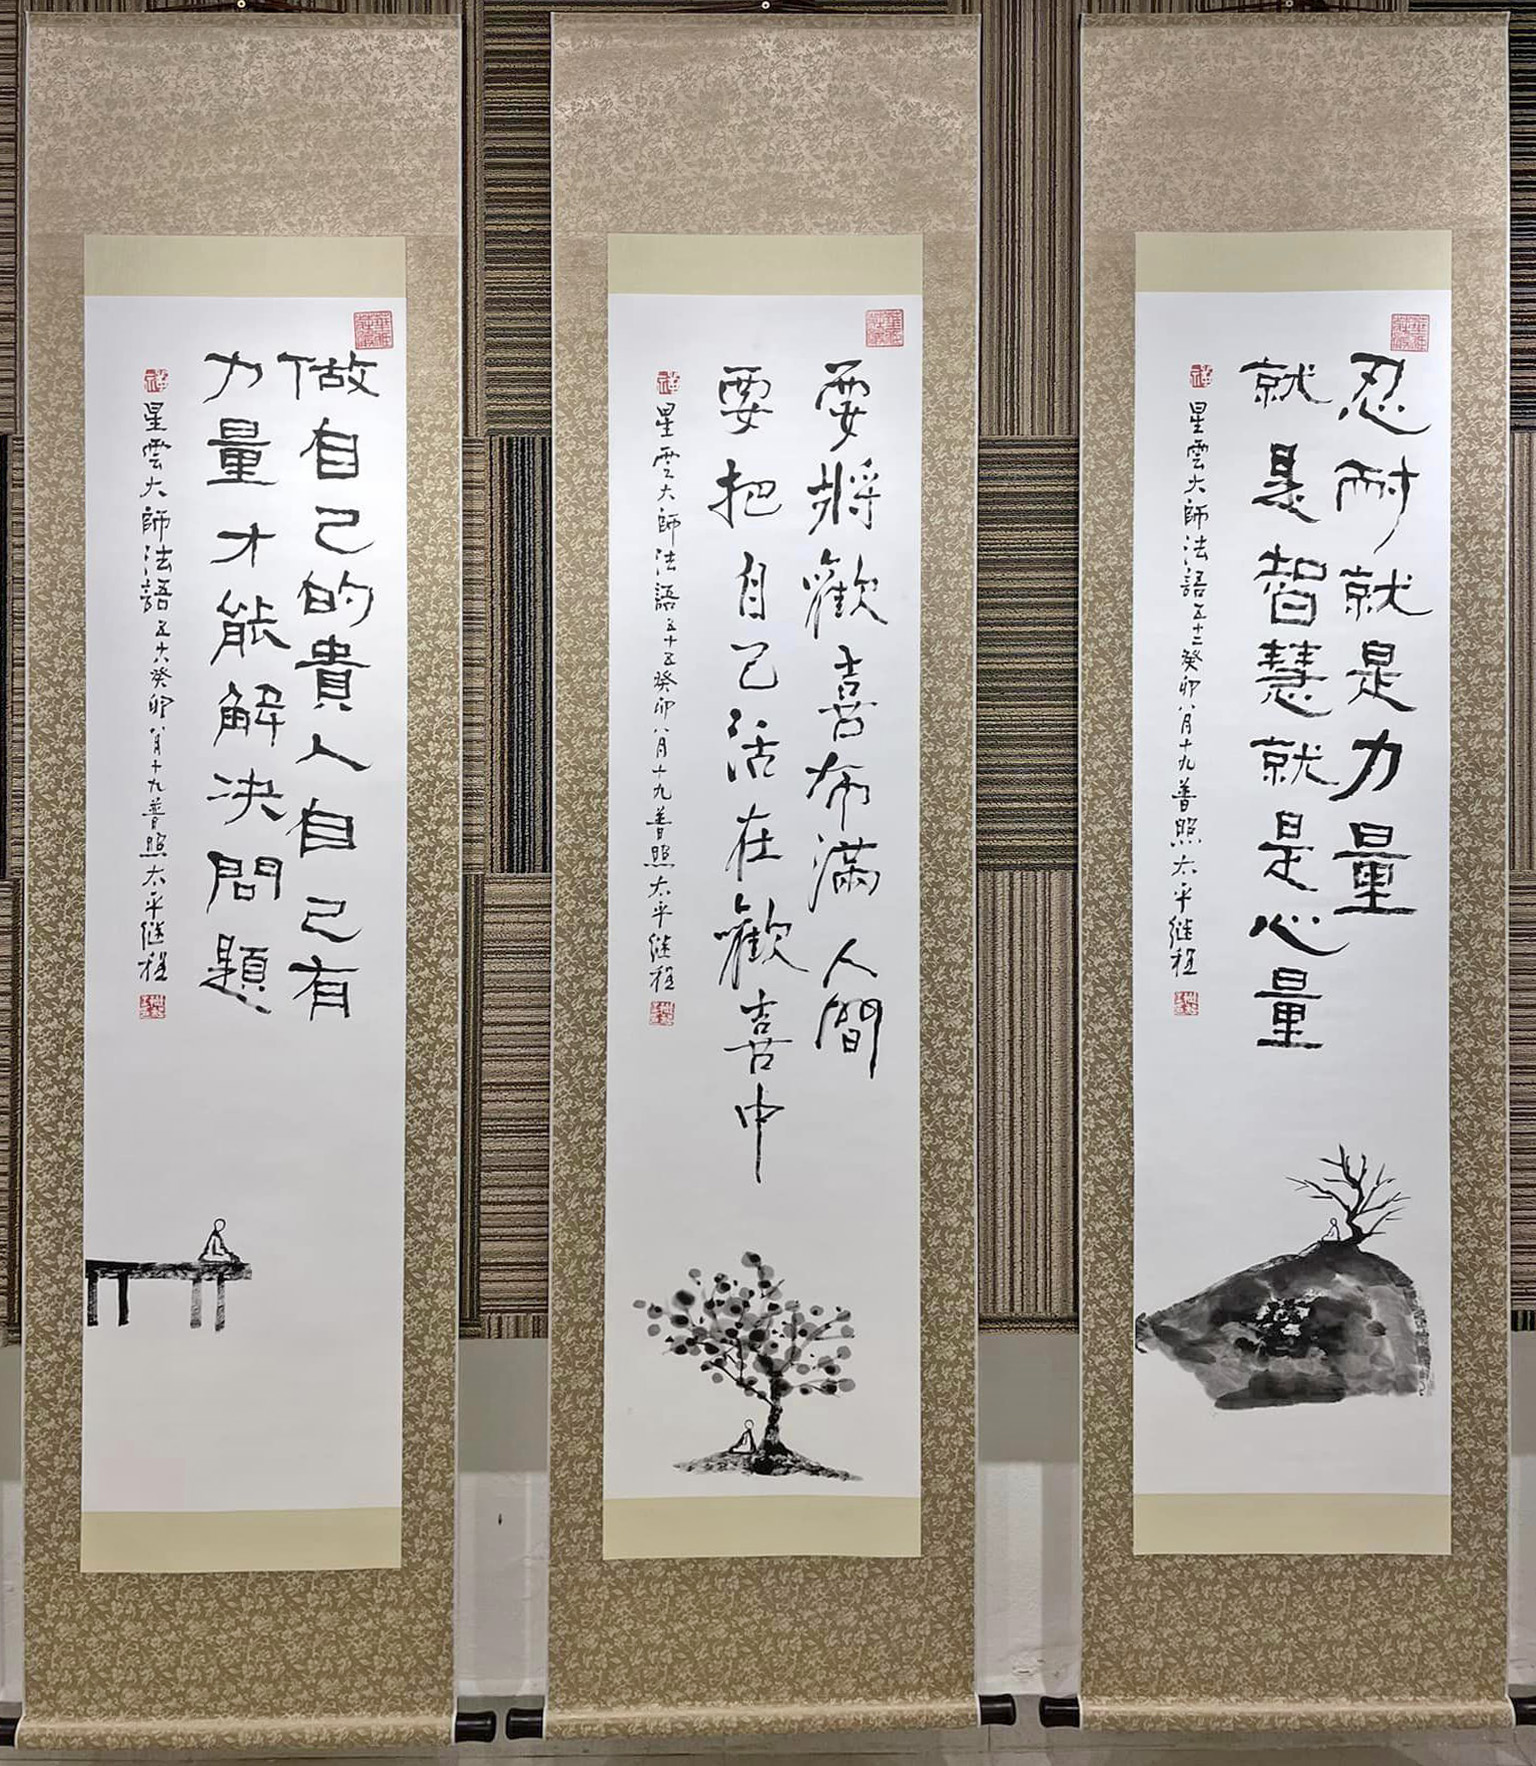 忍耐就是力量
就是智慧就是心量
星雲大師法語五十二癸卯八月十九普照太平继程
要將歡喜布滿人間
要把自己活在歡喜中
星雲大師法語五十五癸卯八月十九普照太平继程
做自己的貴人自己有
力量才能解決問題
星雲大師法語五十六癸卯八月十九普照太平继程